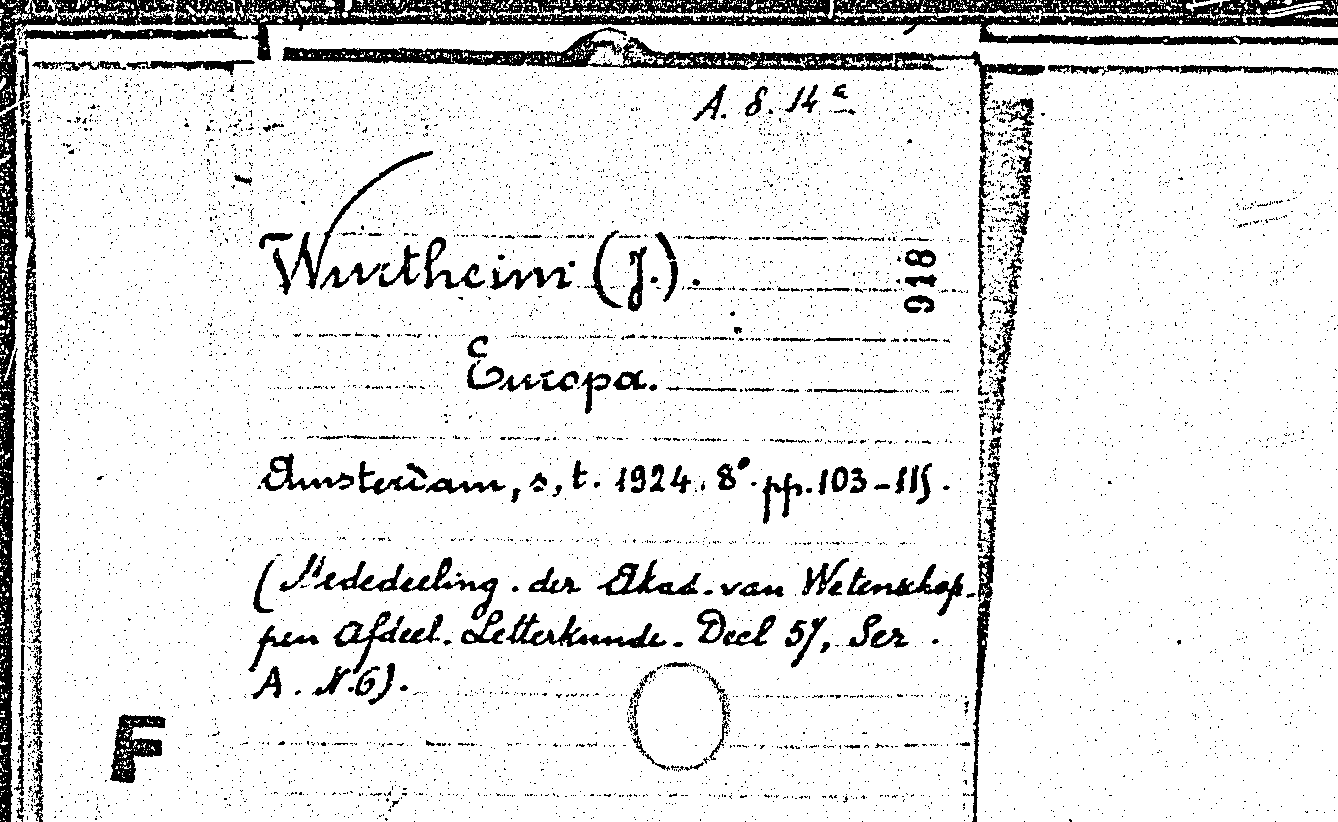 A. 8. 14 c
Wurtheim (J.).
918
Europa.
Amsterdam, s, t. 1924. 8°. pp. 103-115.
(Mededeeling. der Akad. van Wetenschap-
pen Afdeel. Letterkunde. Deel 57, Ser.
A. N. 6).
F